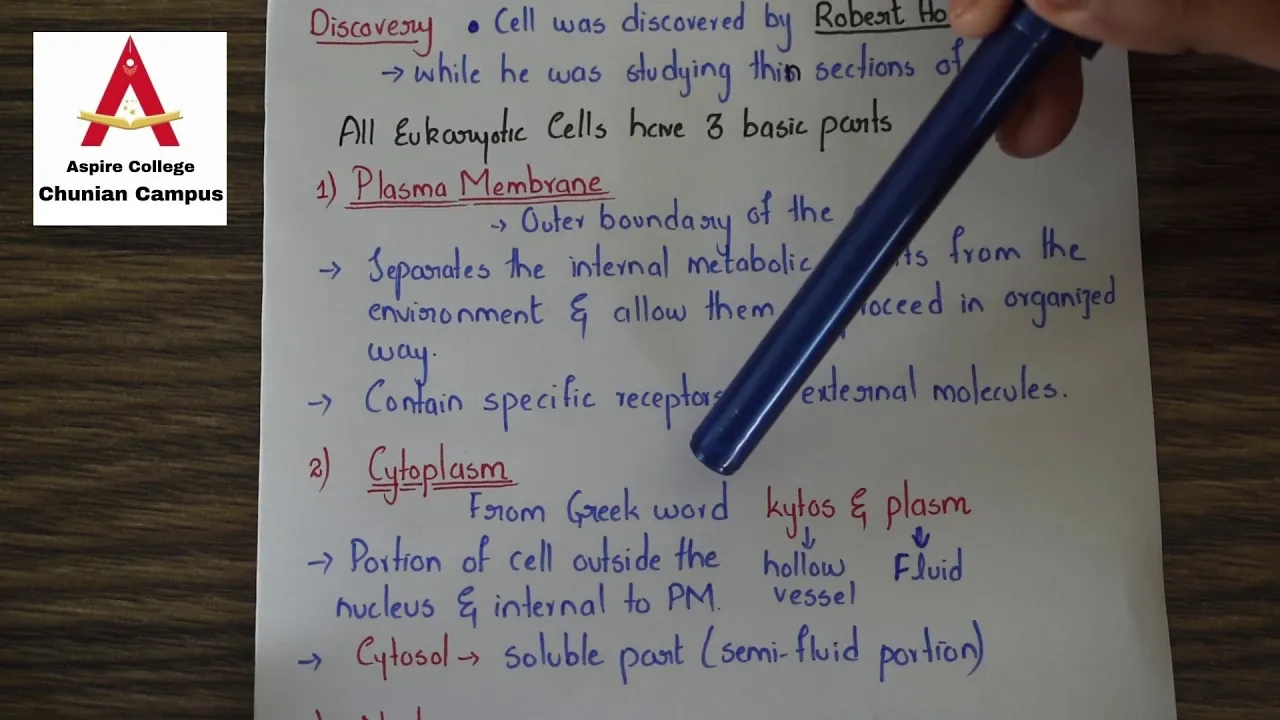 Aspire College
Chunian Campus
Discovery • Cell was discovered by Robert Ho
→ while he was studying thin sections of
All Eukaryotic Cells have 3 basic parts
1) Plasma Membrane
→ Outer boundary of the
→ Separates the internal metabolic from the
environment & allow them in organized
way.
→ Contain specific receptors external molecules.
2) Cytoplasm
From Greek word kytos & plasm
↓ ↓
→ Portion of cell outside the hollow Fluid
nucleus & internal to PM. vessel
→ Cytosol → soluble part (semi-fluid portion)